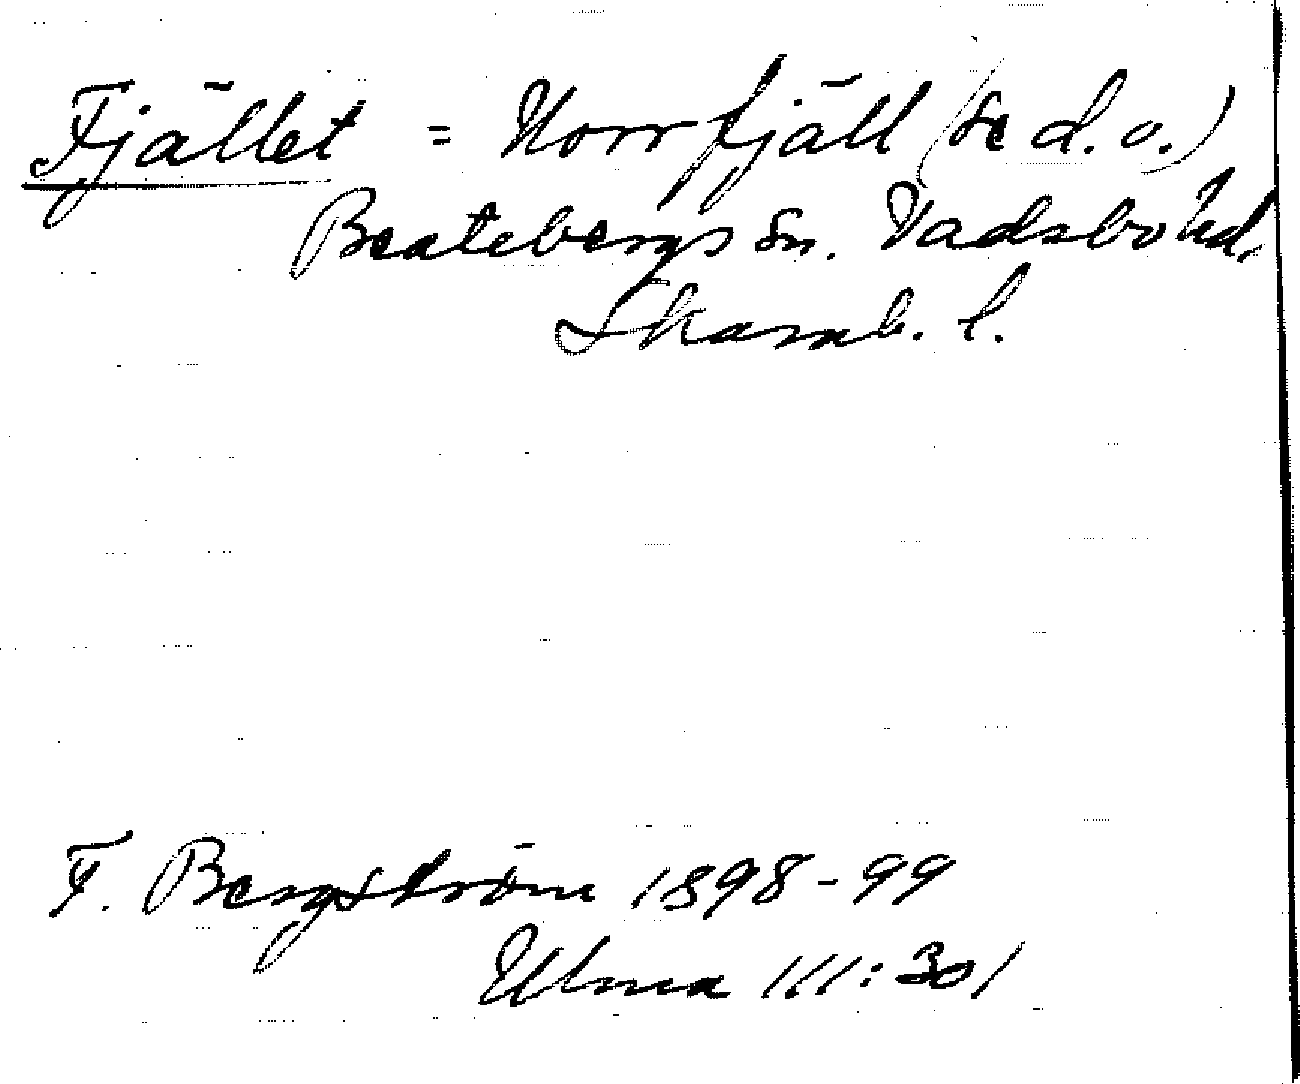 Fjället = Norrfjäll (se d.o.)
Beatebergs sn. Vadsbo hd.
Skarab. l.
F. Bergström 1898-99
Ulma 111:301